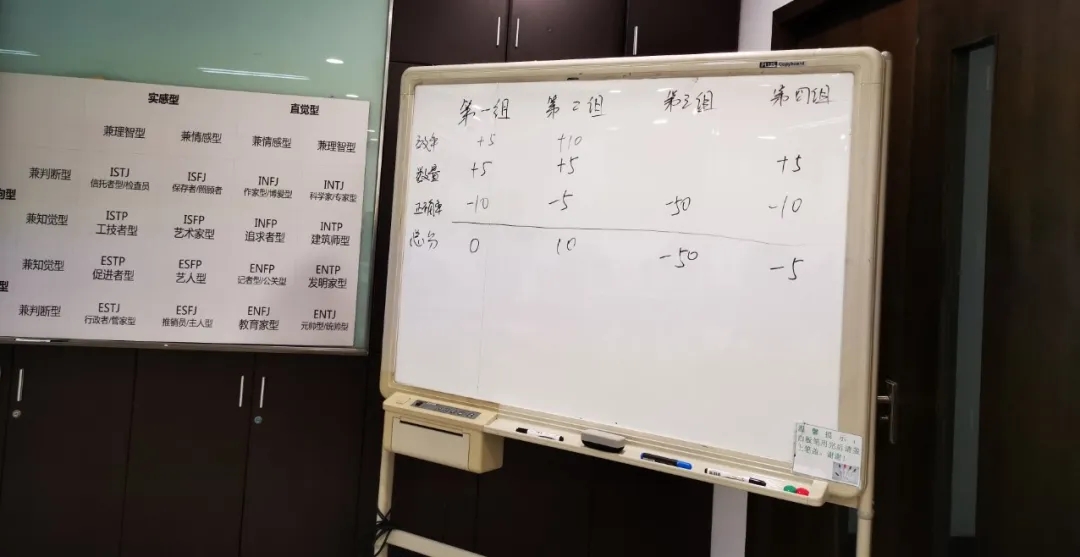 实感型 直觉型
兼理智型 兼情感型 兼情感型 兼理智型
兼判断型 ISTJ ISFJ INFJ INTJ
信托者型/检查员 保存者/照顾者 作家型/博爱型 科学家/专家型
向型
兼知觉型 ISTP ISFP INFP INTP
工技者型 艺术家型 追求者型 建筑师型
兼知觉型 ESTP ESFP ENFP ENTP
促进者型 艺人型 记者型/公关型 发明家型
型
兼判断型 ESTJ ESFJ ENFJ ENTJ
行政者/管家型 推销员/主人型 教育家型 元帅型/统帅型
PLUS Copyboard
第一组 第二组 第三组 第四组
效率 +5 +10
数量 +5 +5 +5
正确率 -10 -5 -50 -10
总分 0 10 -50 -5
温馨提示:
白板笔用完后请盖
上笔盖,谢谢!